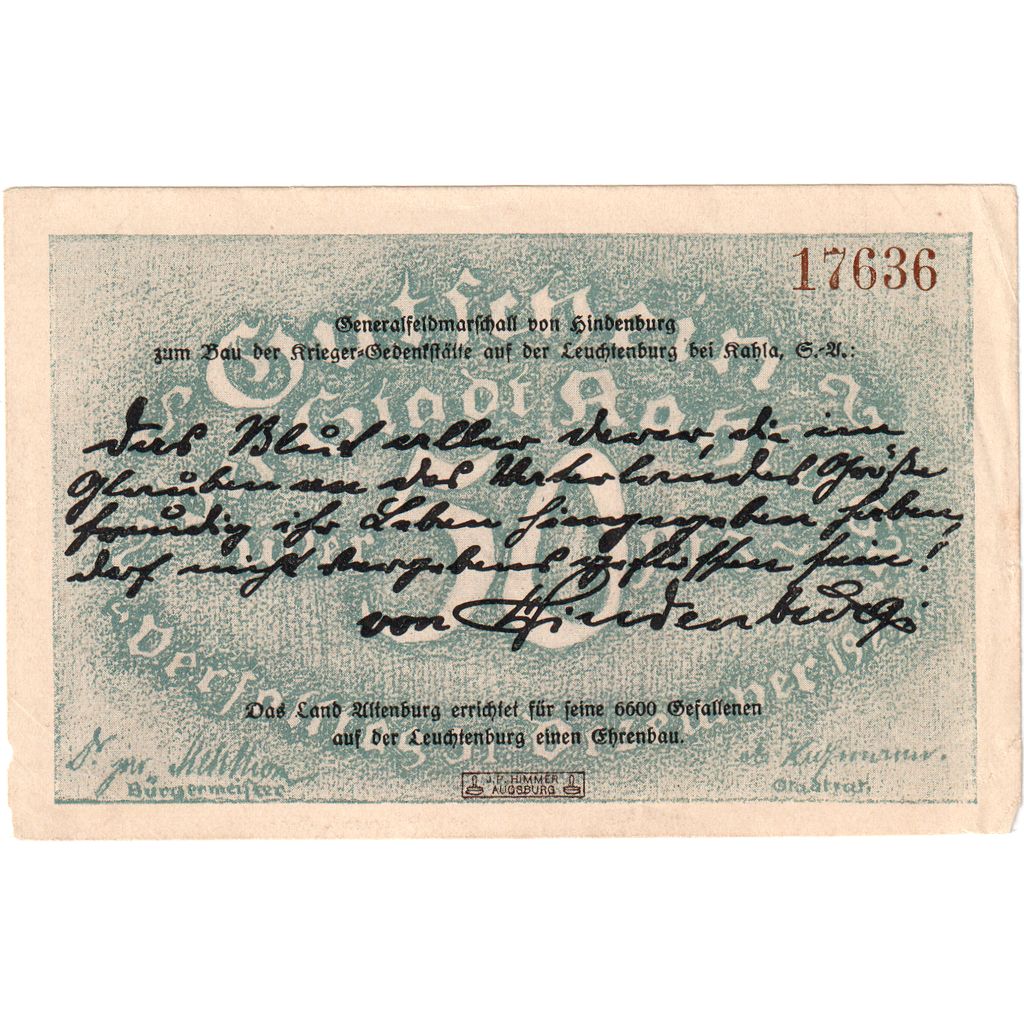 17636
Gutschein
Generalfeldmarschall von Hindenburg
zum Bau der Krieger-Gedenkstätte auf der Leuchtenburg bei Kahla, S.-A.:
Stadt Kahla
Das Blut aller derer, die im
Glauben an des Vaterlandes Größe
freudig ihr Leben hingegeben haben,
darf nicht vergebens geflossen sein!
50
von Hindenburg
Das Land Altenburg errichtet für seine 6600 Gefallenen
auf der Leuchtenburg einen Ehrenbau.
Dr. jur.
Bürgermeister
Stadtrat.
J.P. HIMMER
AUGSBURG